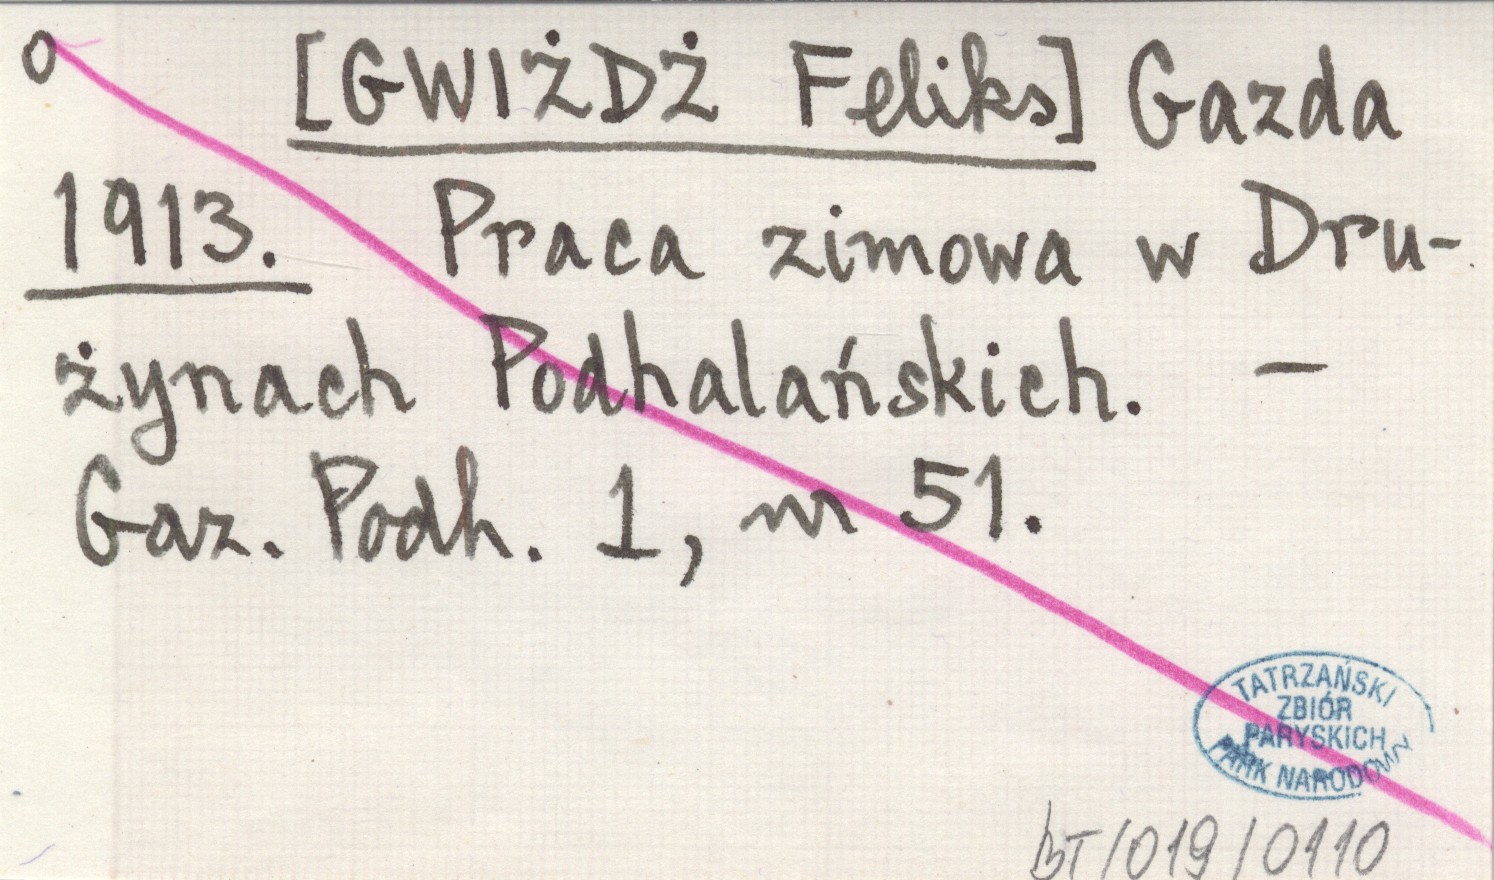 o [GWIŻDŻ Feliks] Gazda
1913. Praca zimowa w Dru-
żynach Podhalańskich. —
Gaz. Podh. 1, nr 51.
TATRZAŃSKI
ZBIÓR
PARYSKICH
PARK NARODOWY
BT/019/0110